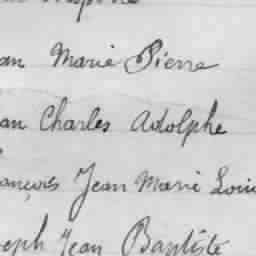 an Marie Pierre
an Charles Adolphe
ançois Jean Marie Loui
seph Jean Baptiste